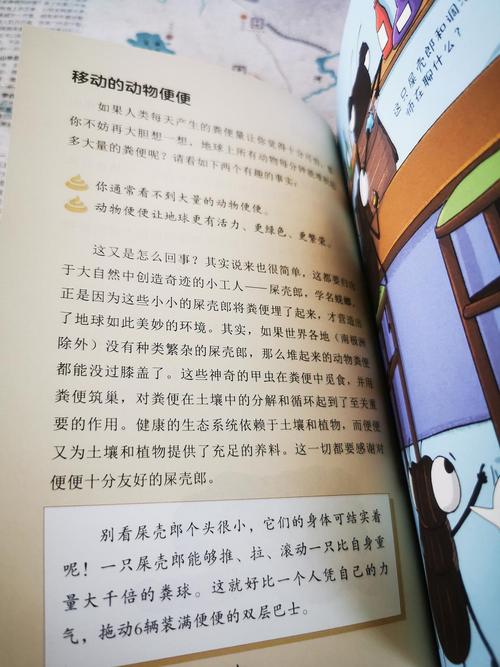 移动的动物便便
如果人类每天产生的粪便量让你觉得十分可怕,
你不妨再大胆想一想,地球上所有动物每分钟
多大量的粪便呢?请看如下两个有趣的事实:
你通常看不到大量的动物便便。
动物便便让地球更有活力、更绿色、更繁荣。
这又是怎么回事?其实说来也很简单,这都要归
于大自然中创造奇迹的小工人——屎壳郎,学名蜣螂。
正是因为这些小小的屎壳郎将粪便埋了起来,才营造
了地球如此美妙的环境。其实,如果世界各地(南极洲
除外)没有种类繁杂的屎壳郎,那么堆起来的动物粪便
都能没过膝盖了。这些神奇的甲虫在粪便中觅食,并用
粪便筑巢,对粪便在土壤中的分解和循环起到了至关重
要的作用。健康的生态系统依赖于土壤和植物,而便便
又为土壤和植物提供了充足的养料。这一切都要感谢对
便便十分友好的屎壳郎。
别看屎壳郎个头很小,它们的身体可结实着
呢!一只屎壳郎能够推、拉、滚动一只比自身重
量大千倍的粪球。这就好比一个人凭自己的力
气,拖动6辆装满便便的双层巴士。
这只屎壳郎和调
师在聊什么?